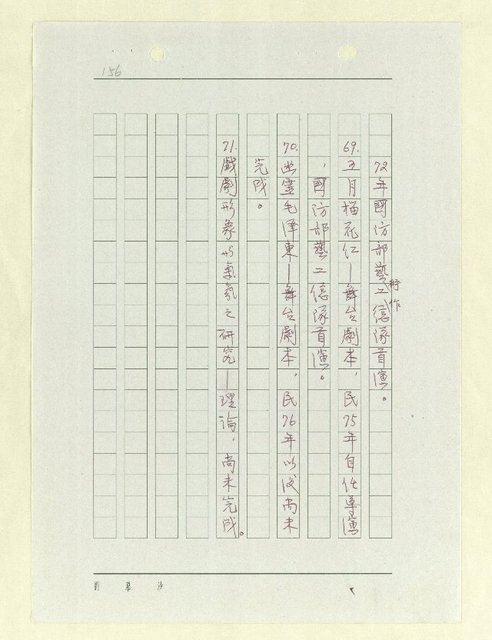 156
72年國防部藝工總隊首演。
69.五月榴花紅—舞台劇本,民75年自任導演
,國防部藝工總隊首演。
70.幽靈毛澤東—舞台劇本,民76年以後尚未
完成。
71.戲劇形象的氣氛之研究—理論,尚未完成。
劉慕沙